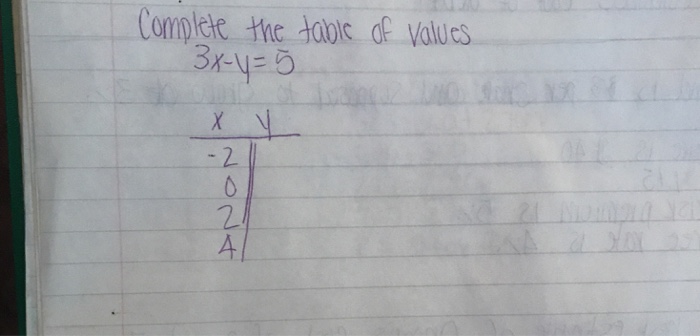 Complete the table of values
3x-y=5
x y
-2
0
2
4